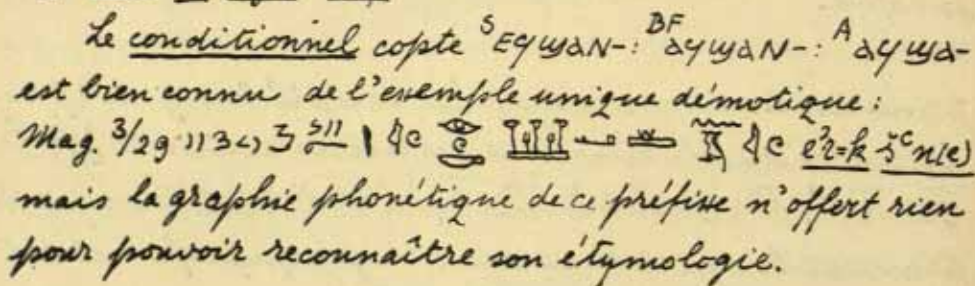 Le conditionnel copte ˢⲉϥϣⲁⲛ-: ᴮᶠⲁϥϣⲁⲛ-: ᴬⲁϥϣⲁ-
est bien connu de l'exemple unique démotique:
Mag. 3/29 e'r=k šꜥn(e)
mais la graphie phonétique de ce préfixe n'offert rien
pour pouvoir reconnaître son étymologie.